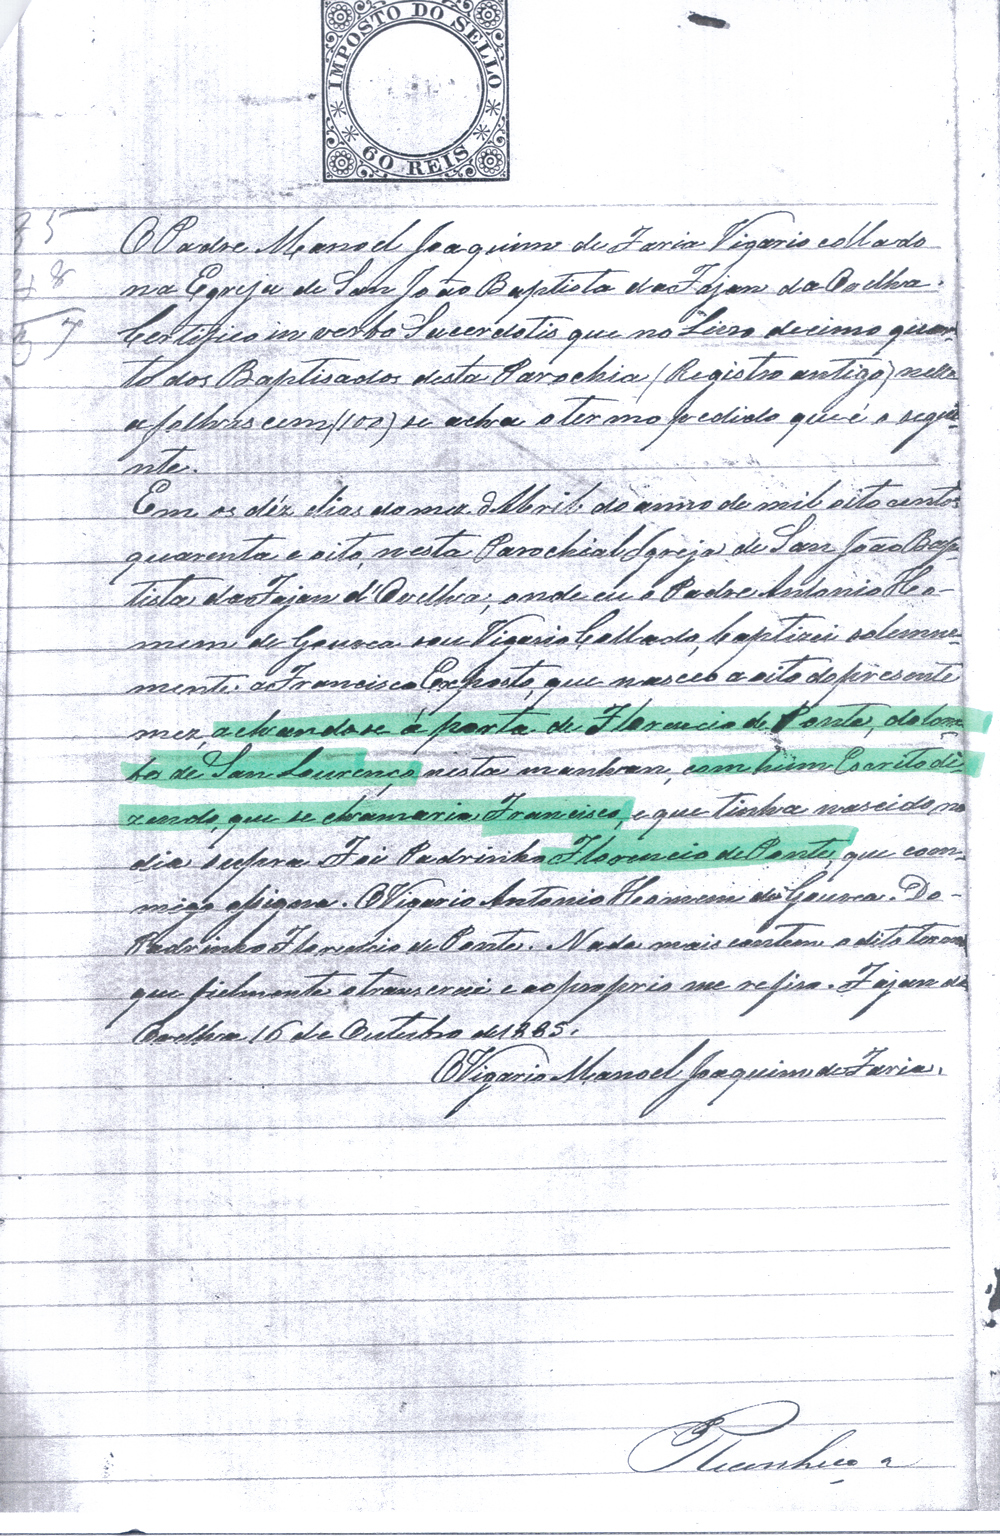 IMPOSTO DO SELLO
60 REIS
35
48
57
O Padre Manoel Joaquim de Faria Vigario collado
na Egreja de San João Baptista da Fajan da Ovelha.
Certifico in verbo Sacerdotis que no Livro decimo quar-
to dos Baptisados desta Parochia (Registro antigo) nelle
a folhas cem (100) se acha o termo pedido que é o segui-
nte.
Em os déz dias do mez d'Abril do anno de mil oito centos
quarenta e oito, nesta Parochial Igreja de San João Bap-
tista da Fajan d'Ovelha, onde eu o Padre Antonio Ho-
mem de Gouvea sou Vigario Collado, baptizei solemne-
mente a Francisco Exposto, que nasceo a oito do presente
mez, achando-se á porta de Florencio de Ponte, do Lom-
bo de San Lourenço nesta manhan, com hum Escrito di-
zendo, que se chamaria Francisco, e que tinha nascido no
dia supra Foi Padrinho Florencio de Ponte, que com-
migo assigna. O Vigario Antonio Homem de Gouvea. Do
Padrinho Florencio de Ponte. Nada mais contem o dito termo
que fielmente transcrevi e ao proprio me refiro. Fajan da
Ovelha 16 de Outubro de 1885.
O Vigario Manoel Joaquim de Faria.